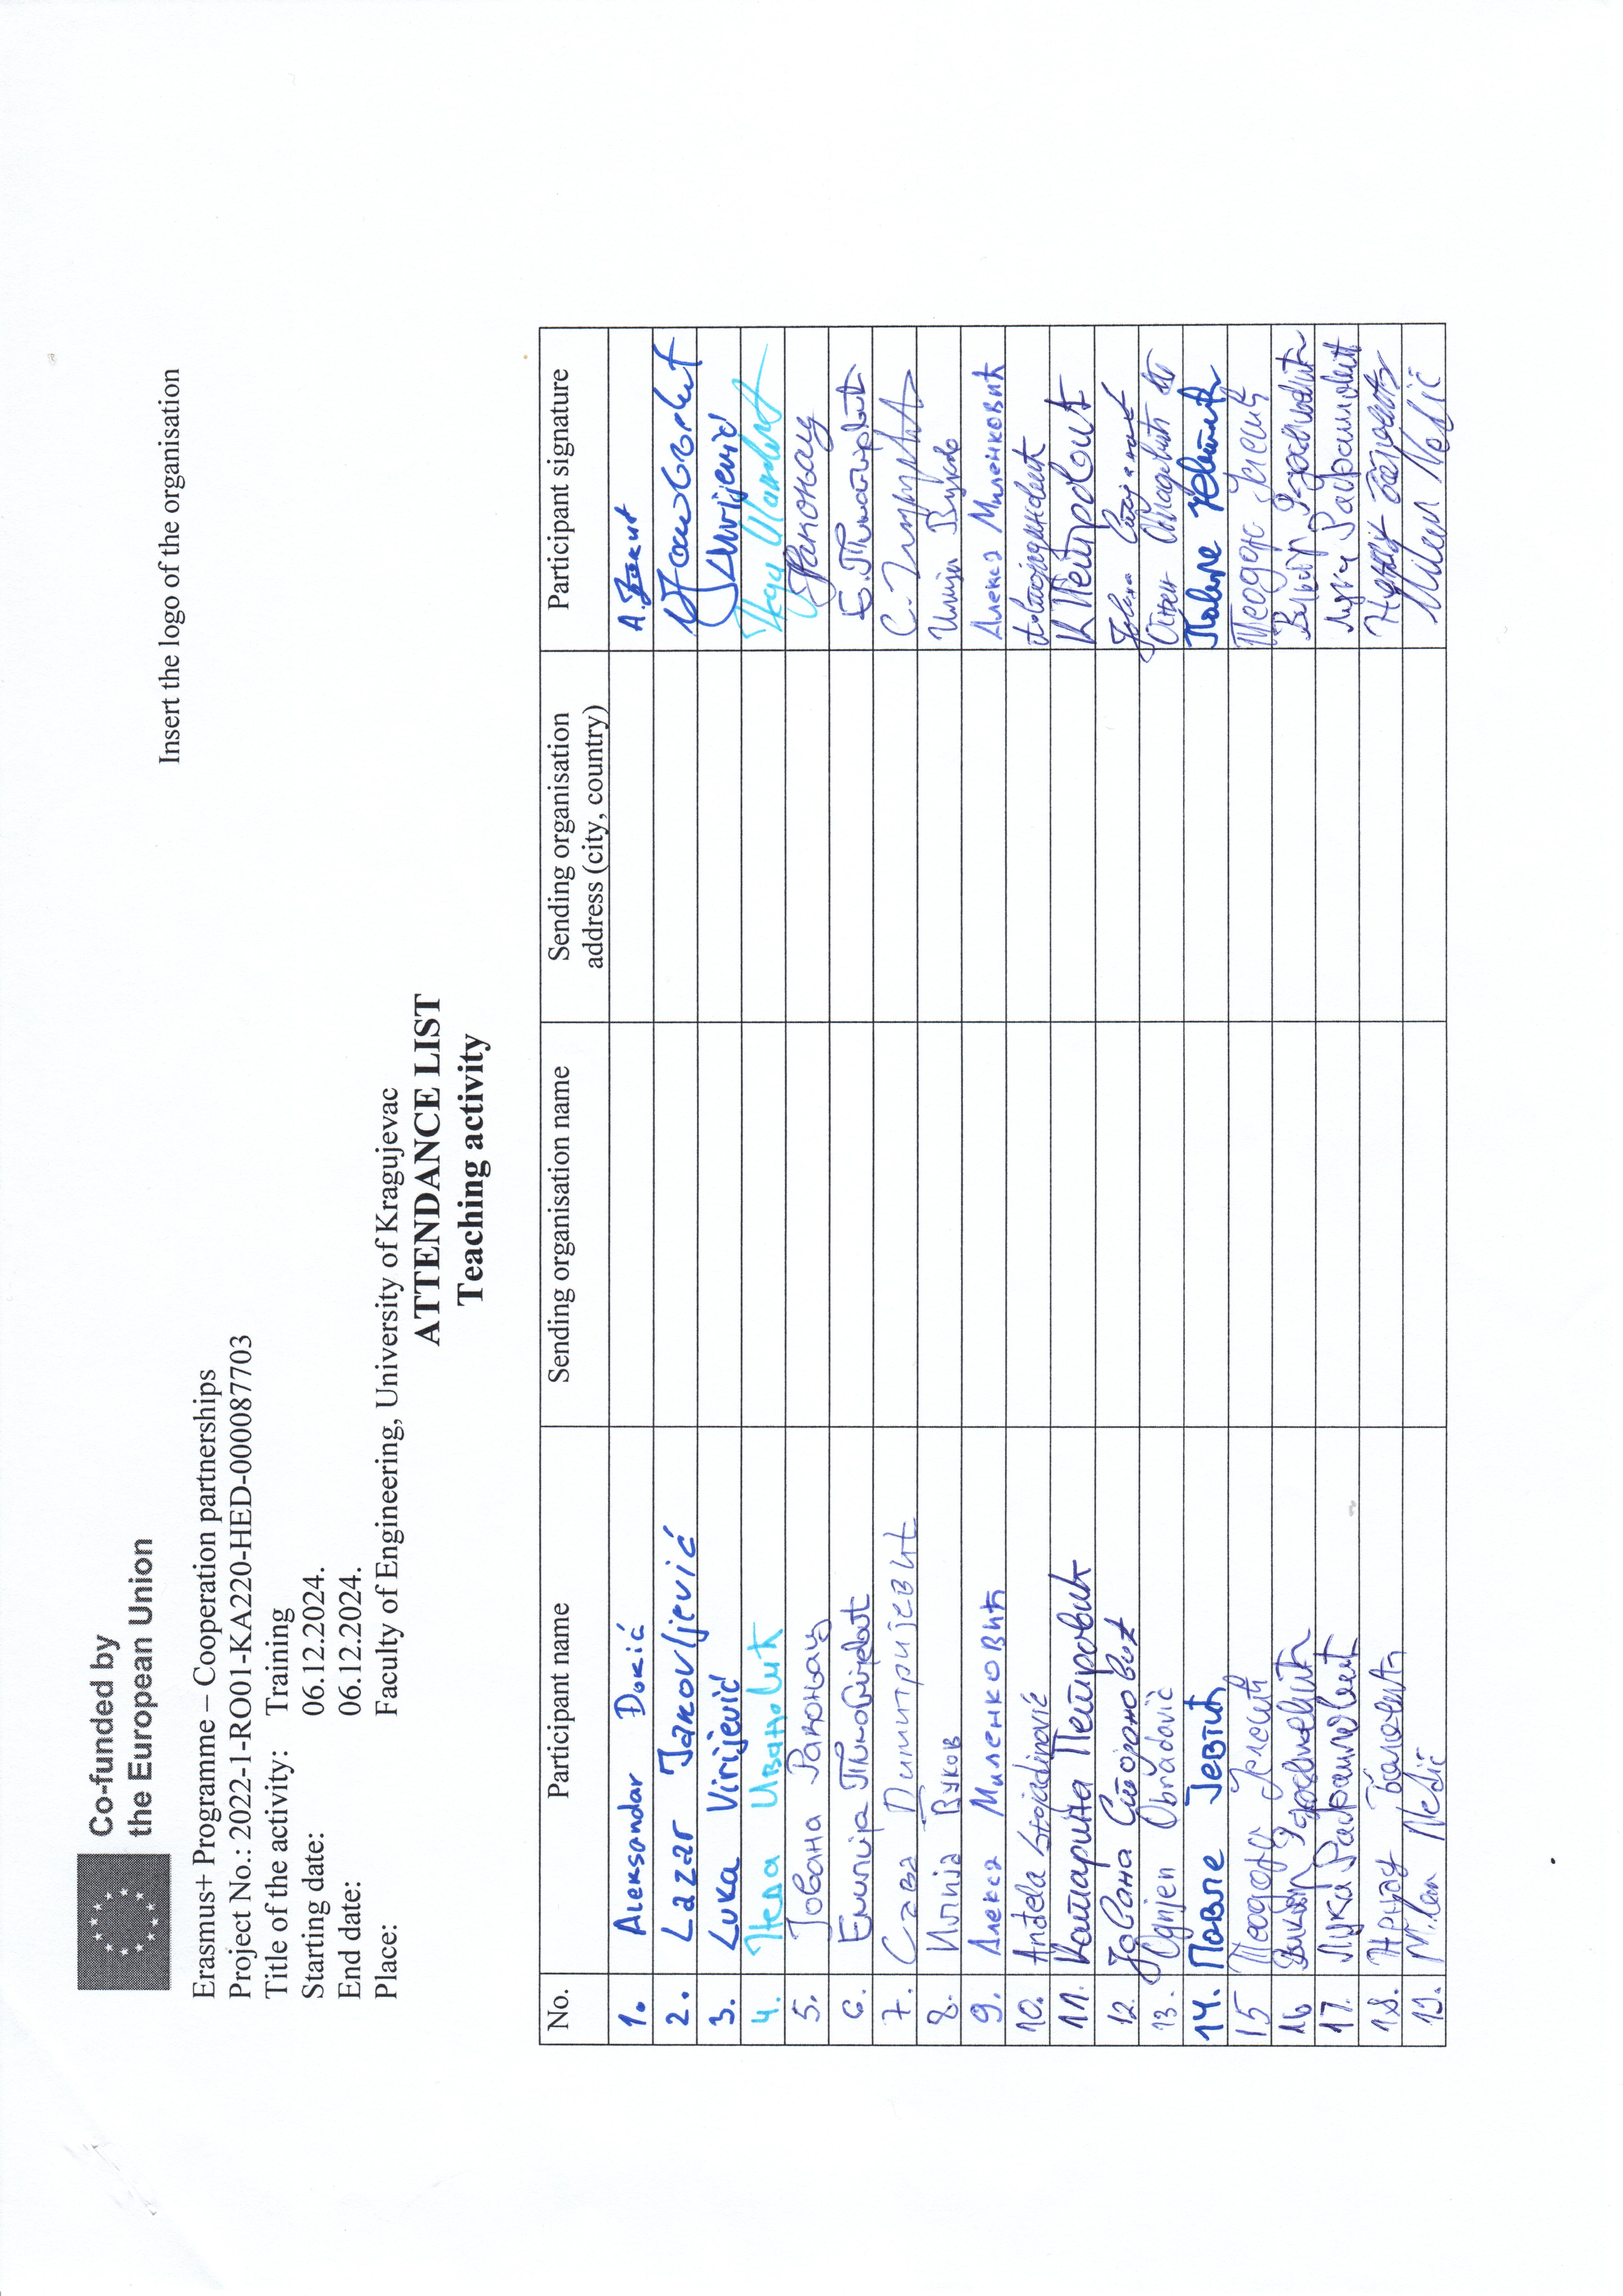 Co-funded by
the European Union
Insert the logo of the organisation
Erasmus+ Programme – Cooperation partnerships
Project No.: 2022-1-RO01-KA220-HED-000087703
Title of the activity: Training
Starting date: 06.12.2024.
End date: 06.12.2024.
Place: Faculty of Engineering, University of Kragujevac
ATTENDANCE LIST
Teaching activity
No. Participant name Sending organisation name Sending organisation address (city, country) Participant signature
1. Aleksandar Đokić А. Ђокић
2. Lazar Jakovljević
3. Luka Virijević Virijević
4. Неда Ивановић
5. Јована Ракоњац Ракоњац
6. Емилија
7. Сава Димитријевић
8. Илија Вуков Илија Вуков
9. Алекса Миленковић Алекса Миленковић
10. Anđela Stojadinović
11. Катарина Петровић К Петровић
12. Јована Стојановић
13. Ognjen Obradović Огњен
14. Павле Јевтић Павле Јевтић
15 Теодора
16
17. Лука Лука
18.
19. Milan Nešić Milan Nešić